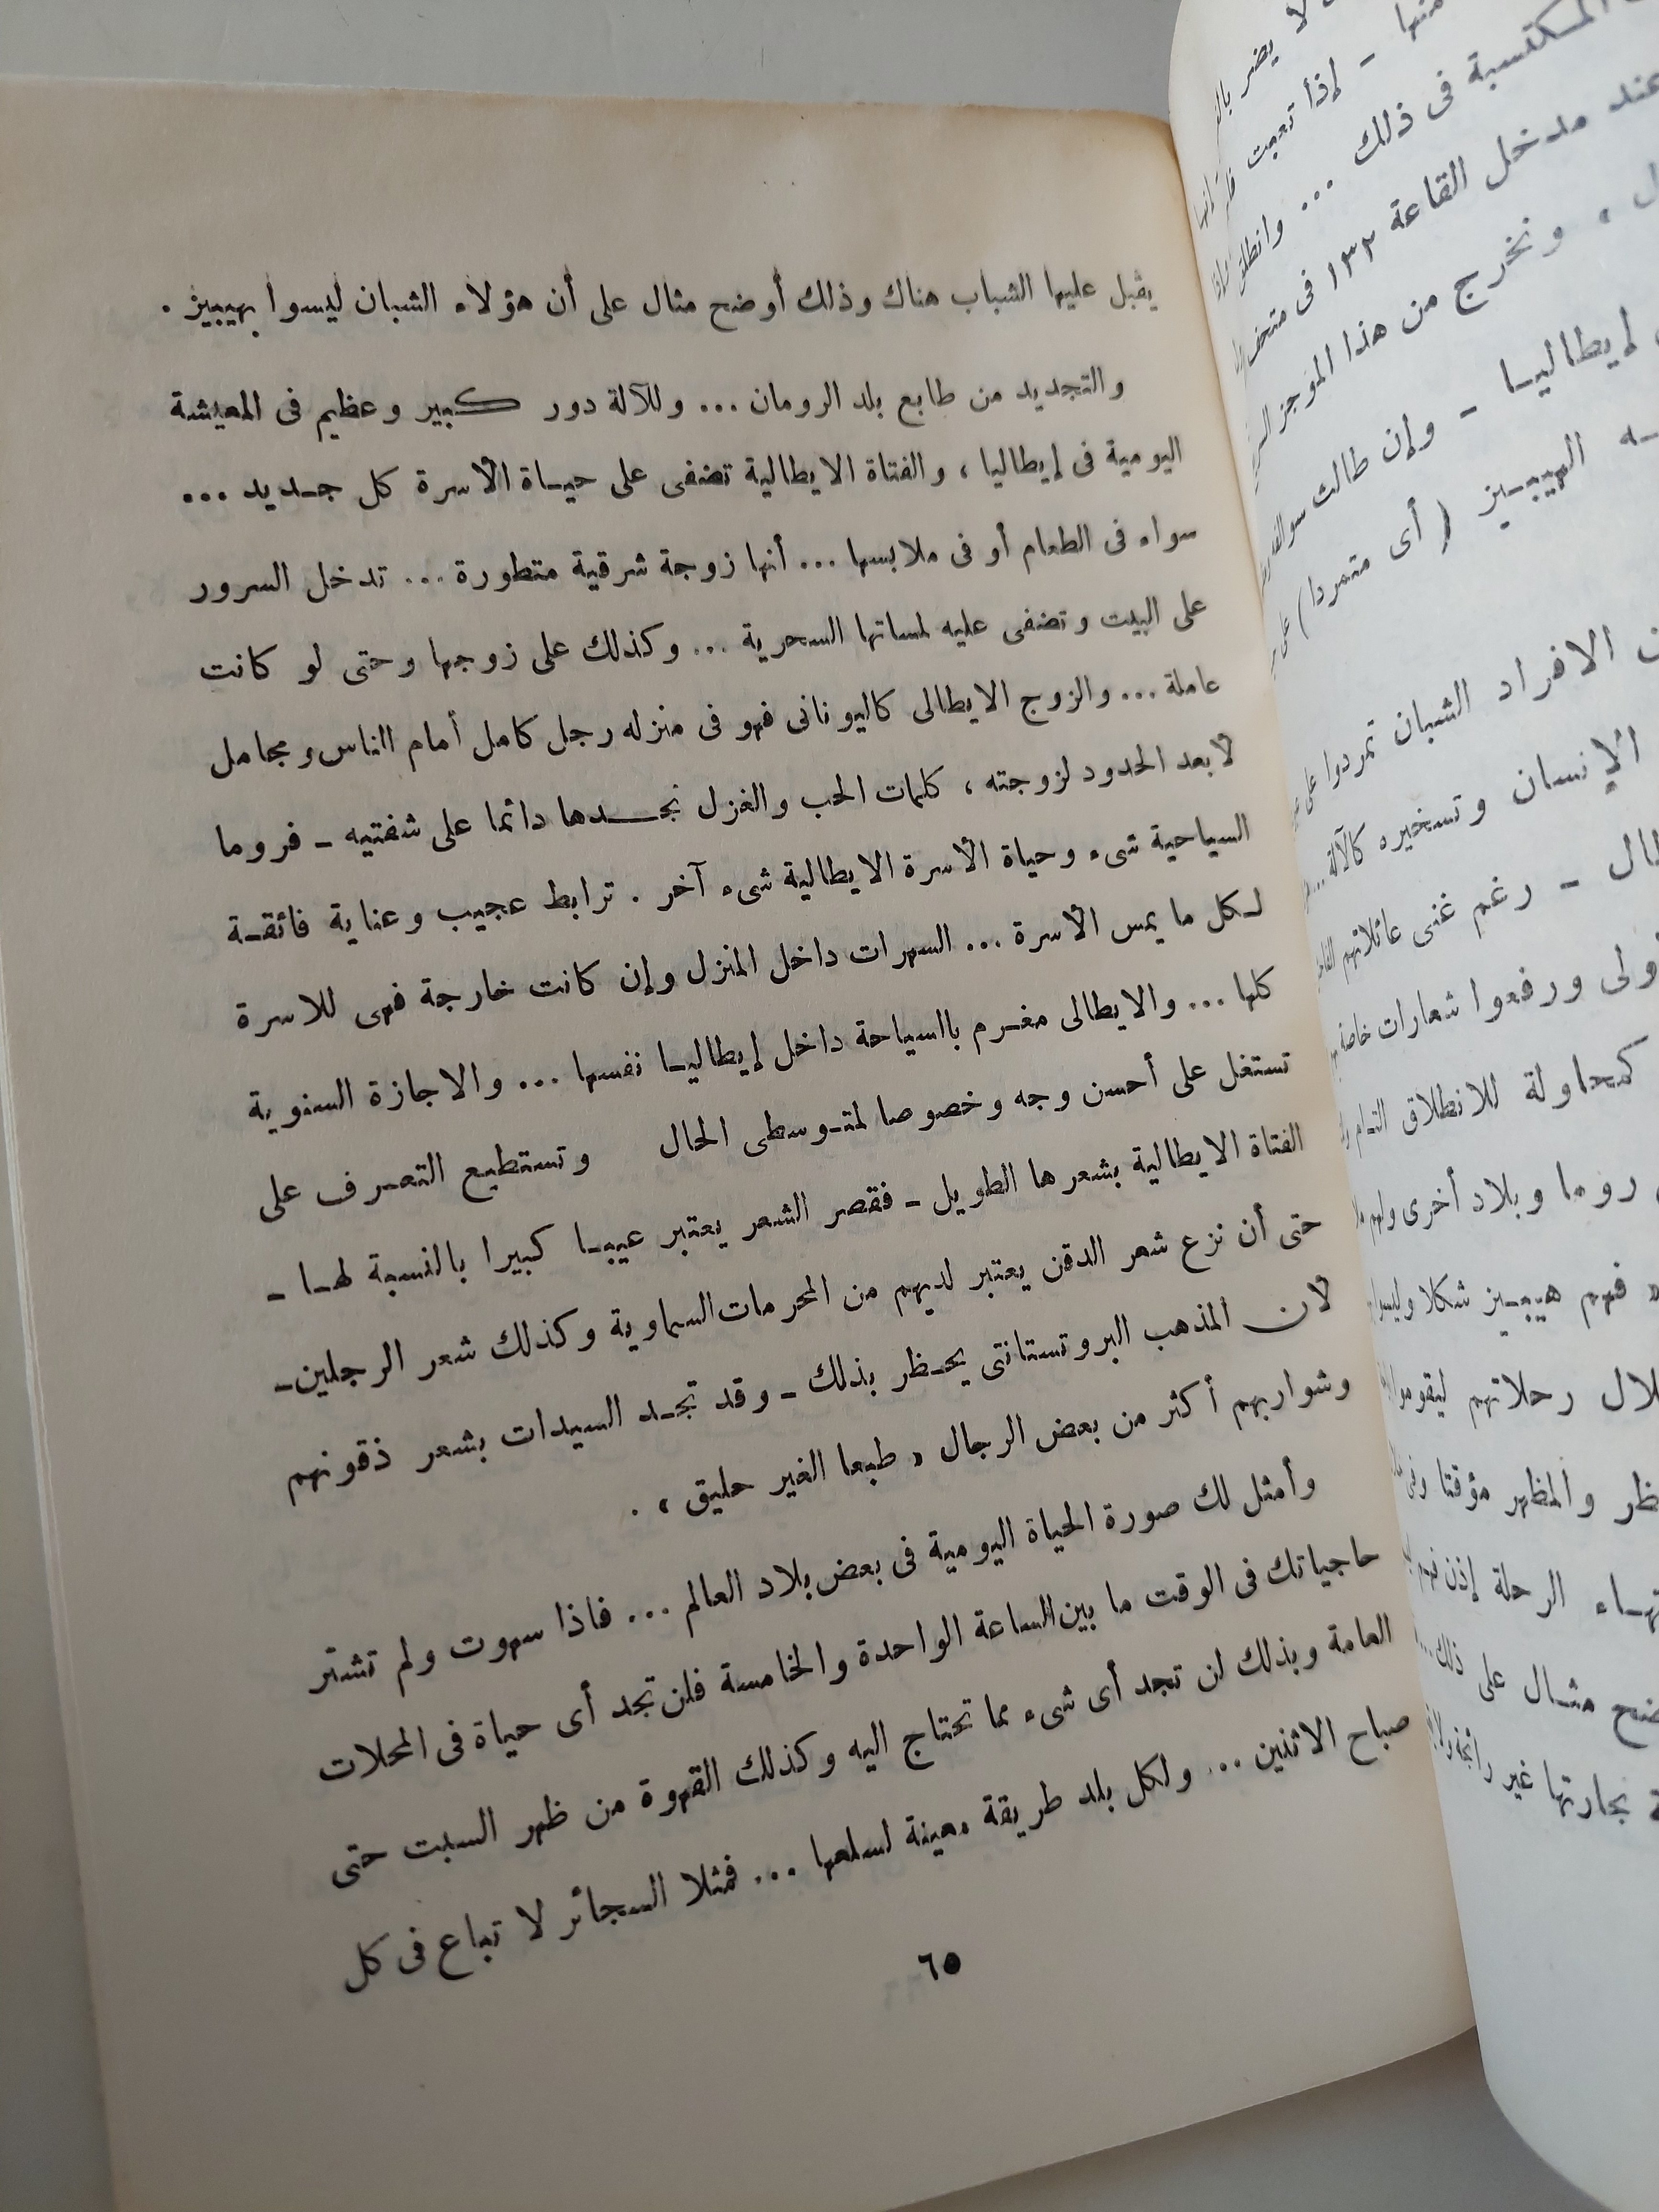 يقبل عليها الشباب هناك وذلك أوضح مثال على أن هؤلاء الشبان ليسوا بهيبيز .
والتجديد من طابع بلد الرومان ... وللآلة دور كبير وعظيم فى المعيشة
اليومية فى إيطاليا ، والفتاة الايطالية تضفى على حياة الأسرة كل جديد ...
سواء فى الطعام أو فى ملابسها ... أنها زوجة شرقية متطورة ... تدخل السرور
على البيت وتضفى عليه لمساتها السحرية ... وكذلك على زوجها وحتى لو كانت
عاملة ... والزوج الايطالى كاليونانى فهو فى منزله رجل كامل أمام الناس ومجامل
لأبعد الحدود لزوجته ، كلمات الحب والغزل نجدها دائما على شفتيه - فروما
السياحية شىء وحياة الأسرة الايطالية شىء آخر . ترابط عجيب وعناية فائقة
لكل ما يمس الأسرة ... السهرات داخل المنزل وإن كانت خارجة فهى للاسرة
كلها ... والايطالى مغرم بالسياحة داخل إيطاليا نفسها ... والاجازة السنوية
تستغل على أحسن وجه وخصوصا لمتوسطى الحال وتستطيع التعرف على
الفتاة الايطالية بشعرها الطويل - فقصر الشعر يعتبر عيبا كبيرا بالنسبة لها -
حتى أن نزع شعر الدقن يعتبر لديهم من المحرمات السماوية وكذلك شعر الرجلين -
لأن المذهب البروتستانتى يحظر بذلك - وقد تجد السيدات بشعر ذقونهم
وشواربهم أكثر من بعض الرجال « طبعا الغير حليق » .
وأمثل لك صورة الحياة اليومية فى بعض بلاد العالم ... فاذا سهوت ولم تشتر
حاجياتك فى الوقت ما بين الساعة الواحدة والخامسة فلن تجد أى حياة فى المحلات
العامة وبذلك لن تجد أى شىء مما تحتاج اليه وكذلك القهوة من ظهر السبت حتى
صباح الاثنين ... ولكل بلد طريقة معينة لسلعها ... فمثلا السجائر لا تباع فى كل
٦٥
لا يضر
منها - إذأ تعبت
المكتسبة فى ذلك ... وانطلق
عند مدخل القاعة ١٣٢ فى متحف
، ونخرج من هذا الموجز
إيطاليا - وإن طالت
الهيبيز ( أى متمردا ) على
الافراد الشبان تمردوا على
الإنسان وتسخيره كالآلة ...
- رغم غنى عائلاتهم
ورفعوا شعارات خاصة
كمحاولة للانطلاق التام
روما وبلاد أخرى ولهم
« فهم هيبيز شكلا وليسوا
رحلاتهم ليقوموا
والمظهر مؤقتا وفى
الرحلة إذن فهم
مثال على ذلك ...
تجارتها غير رائجة